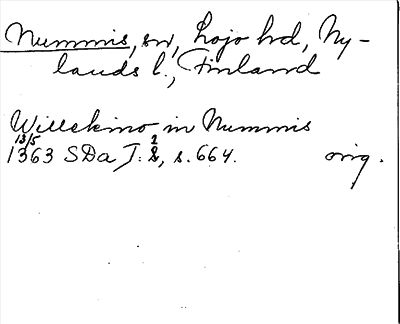 Nummis, sn, Lojo hd, Ny-
lands l., Finland
Willekino in Nummis
13/5
1363 SDa J: 2, s. 664. orig.